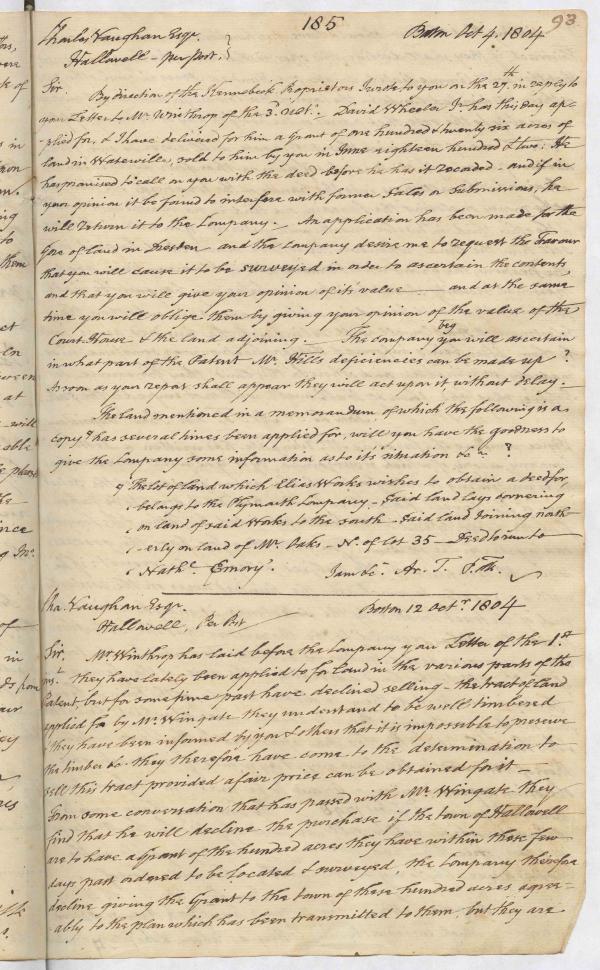 185
93
Charles Vaughan Esqr.
Boston Oct 4. 1804
Hallowell - per Post.
Sir. By direction of the Kennebeck Proprietors I wrote to you on the 27th in reply to
your Letter to Mr. Winthrop of the 3d. David Wheeler Jr. has this day ap-
-plied for, & I have delivered for him a Grant of one hundred & twenty six acres of
land in Waterville, sold to him by you in June eighteen hundred & two: He
has promised to call on you with the deed before he has it recorded - and if in
your opinion it be found to interfere with former Sales or Submissions, he
will return it to the Company. - An application has been made for the
Gore of land in Dresden - and the Company desire me to request the Favour
that you will cause it to be surveyed in order to ascertain the contents,
and that you will give your opinion of its value - and at the same
time you will oblige them by giving your opinion of the value of the
Court House & the land adjoining. - The Company beg you will ascertain
in what part of the Patent Mr. Hills deficiencies can be made up?
As soon as your report shall appear they will act upon it without delay. -
The land mentioned in a memorandum of which the following is a
copy has several times been applied for, will you have the goodness to
give the Company some information as to its situation &c?
"The lot of land which Elias Works wishes to obtain a deed for,
belongs to the Plymouth Company - Said land lays cornering
on land of said Works to the south - Said land Joining north
-erly on land of Mr. Oaks - No. of lot 35 - Deed to run to
Nathl. Emory".
I am &c. Ar. T.
Cha. Vaughan Esqr.
Boston 12 Octr. 1804
Hallowell, Per Post
Sir. Mr. Winthrop has laid before the Company your Letter of the 1st
they have lately been applied to for Land in the various parts of the
Patent, but for some time past have declined selling - the tract of land
applied for by Mr. Wingate they understand to be well timbered
& they have been informed by you & others that it is impossible to preserve
the timber &c. they therefore have come to the determination to
sell this tract provided a fair price can be obtained for it -
From some conversation that has passed with Mr. Wingate they
find that he will decline the purchase if the town of Hallowell
are to have a Grant of the hundred acres they have within these few
days past ordered to be located & surveyed, the Company therefore
decline giving the Grant to the town of these hundred acres agree-
-ably to the plan which has been transmitted to them, but they are